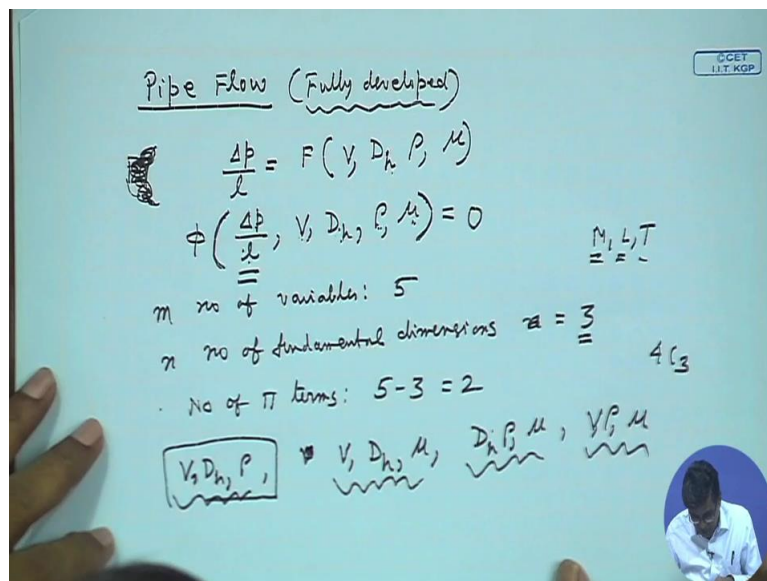 ©CET
I.I.T. KGP
Pipe Flow (Fully developed)
Δp/l = F(V, D_h ρ, μ)
φ(Δp/l, V, D_h, ρ, μ) = 0
M, L, T
m no of variables: 5
n no of fundamental dimensions = 3
4C3
No of Π terms: 5-3 = 2
V, D_h, ρ, V, D_h, μ, D_h ρ, μ, Vρ, μ